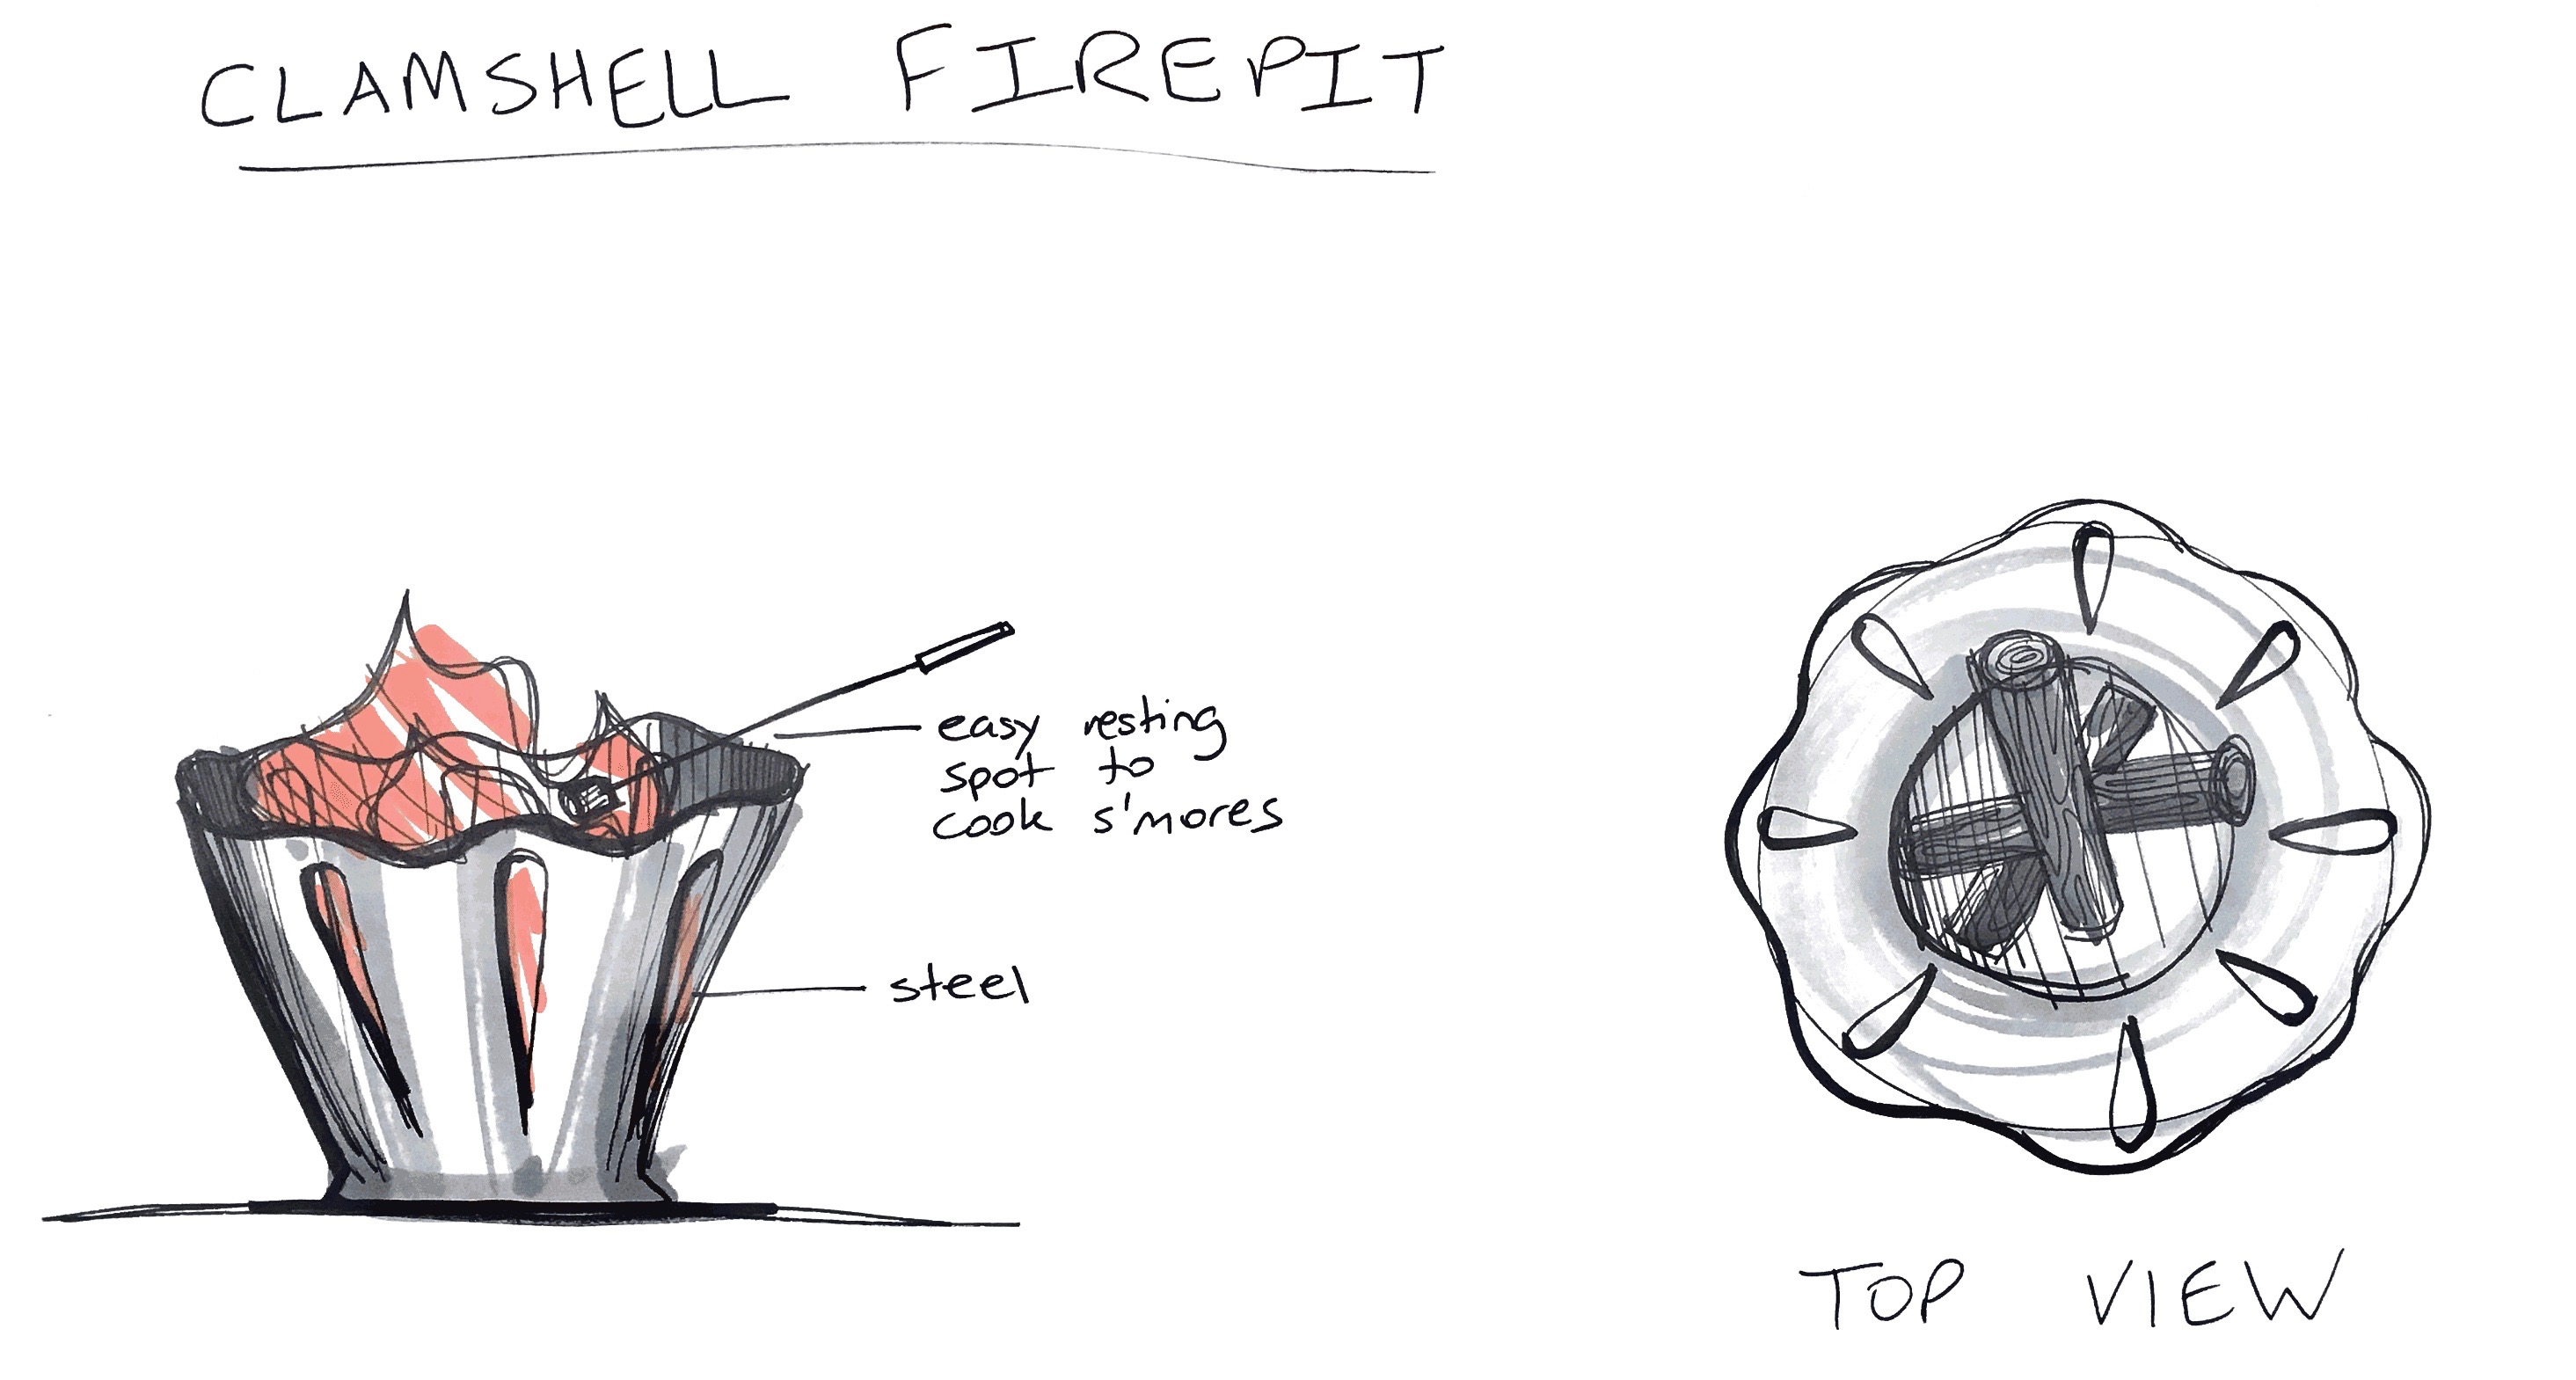 CLAMSHELL FIREPIT
easy resting
spot to
cook s'mores
steel
TOP VIEW